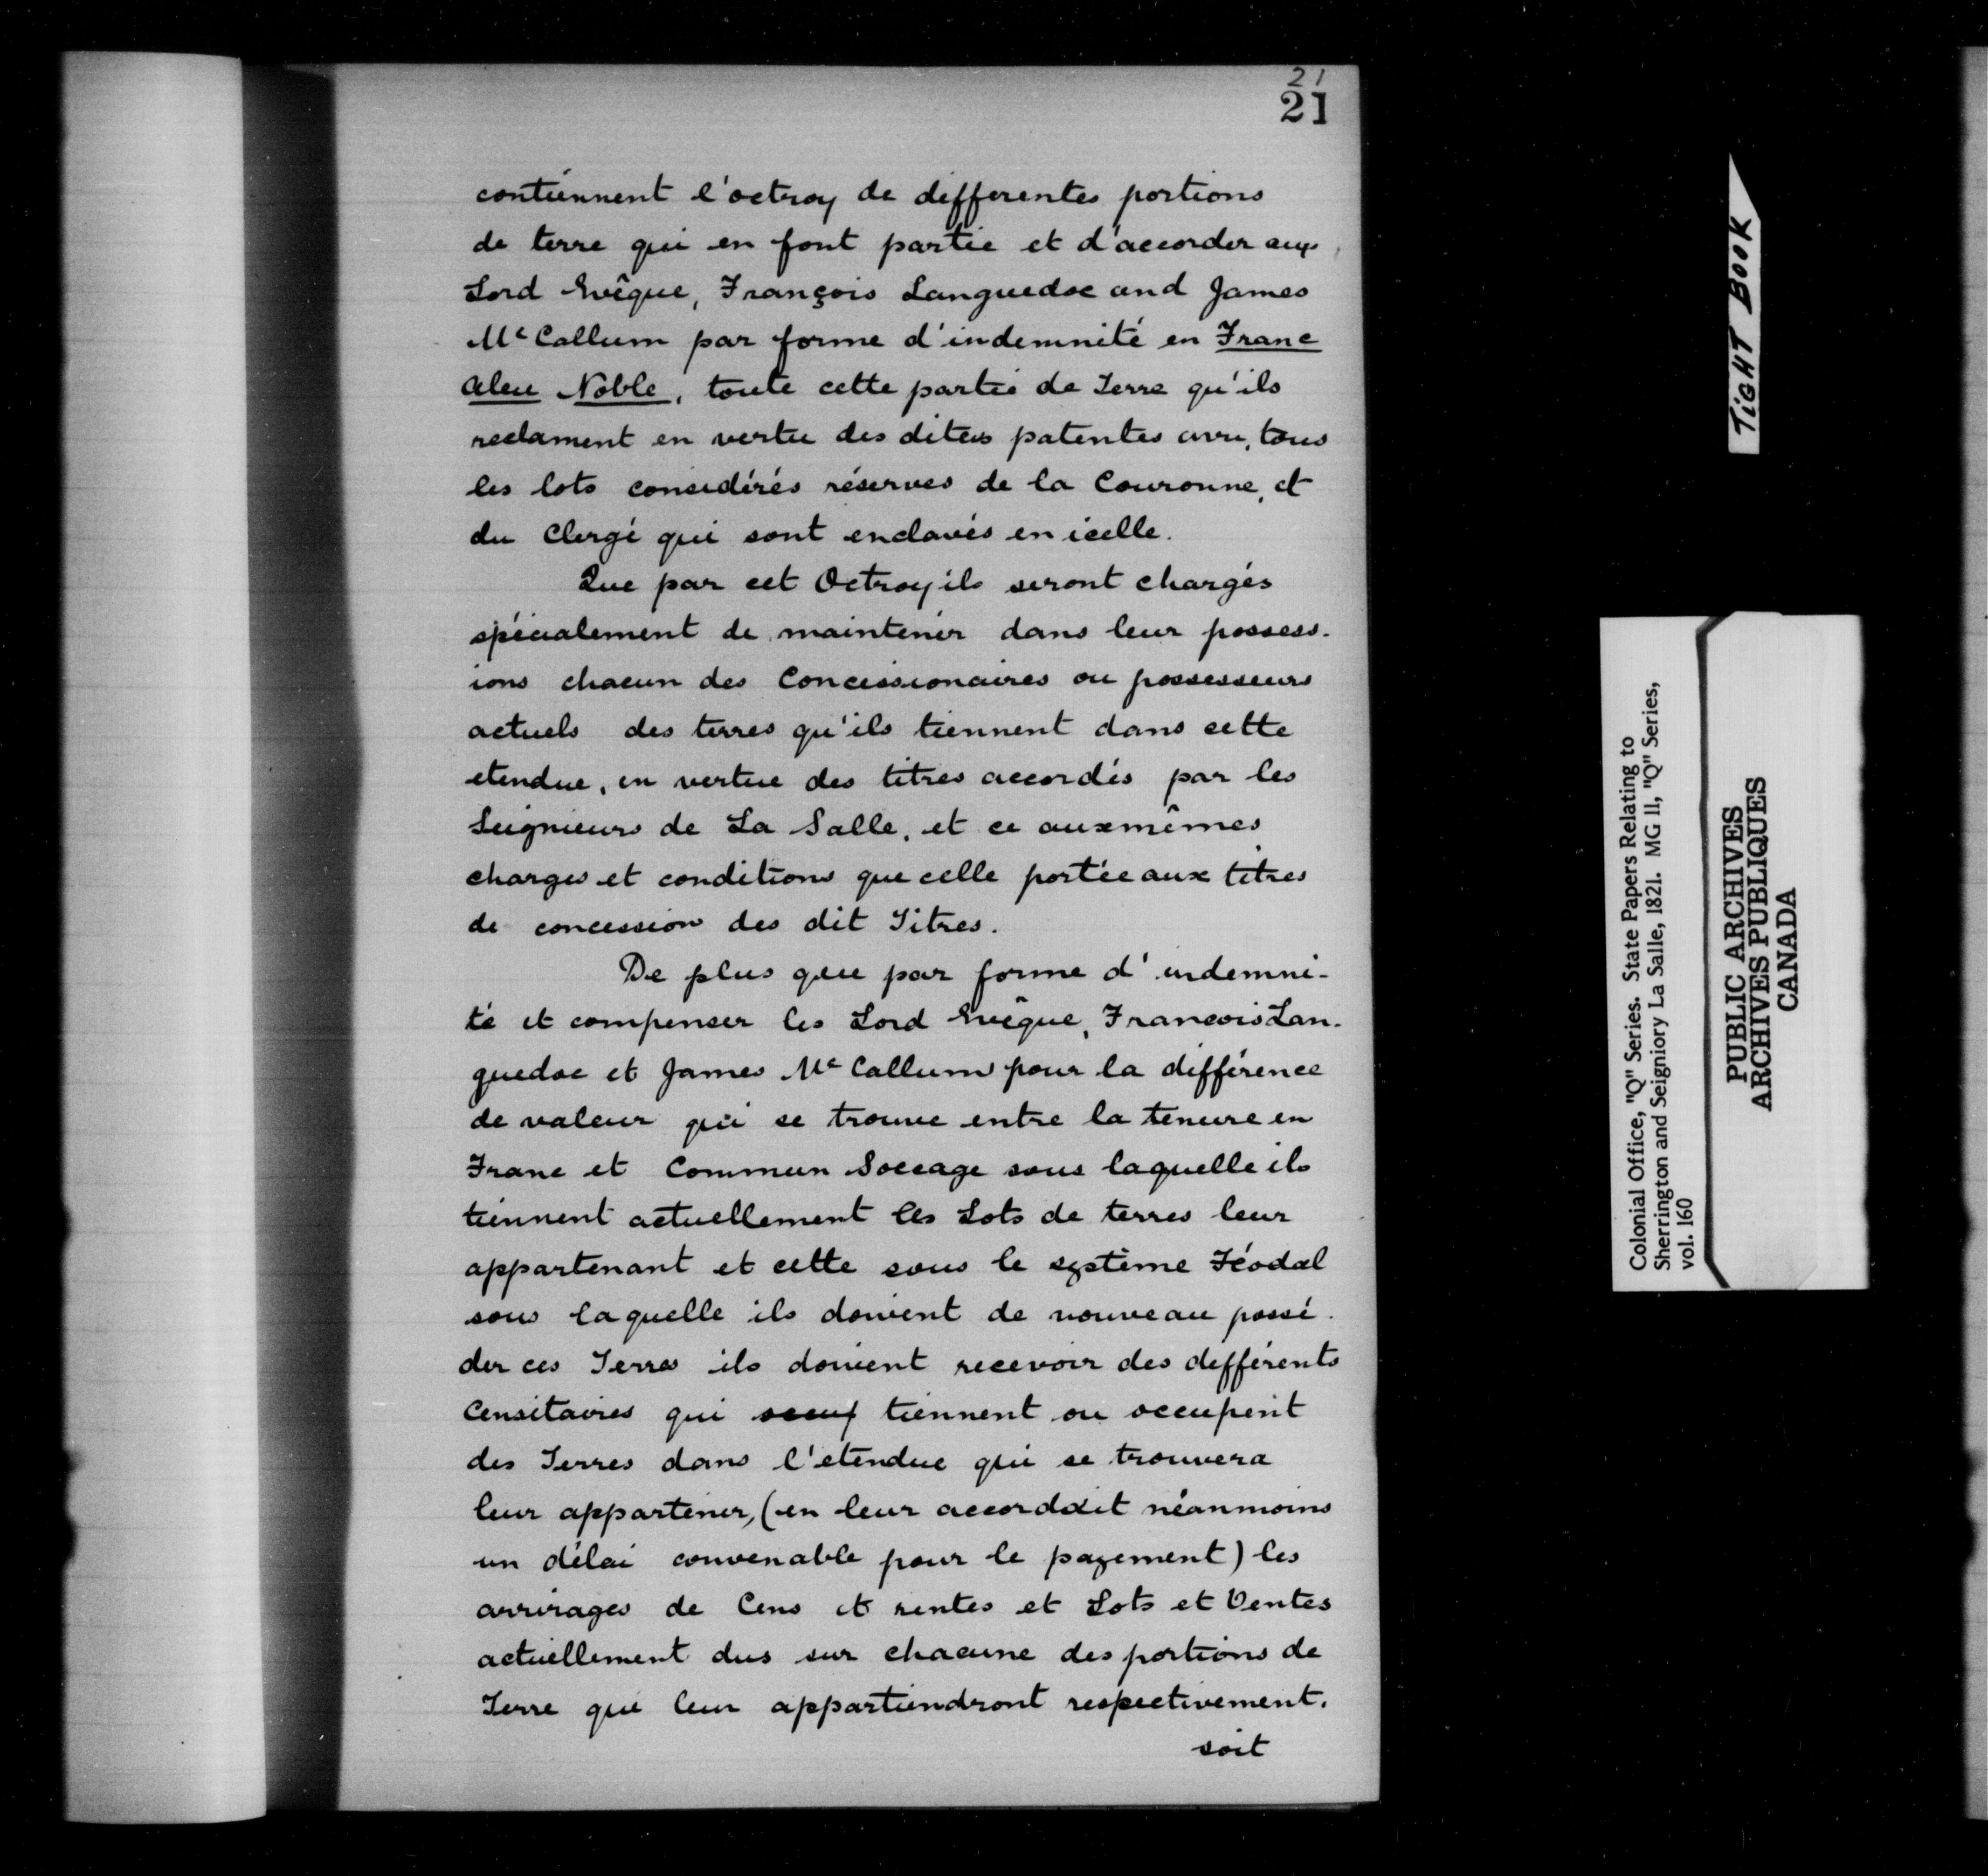 21
21
contiennent l'octroy de differentes portions
de terre qui en font partie et d'accorder aux
Lord Evêque, François Languedoc and James
Mc Callum par forme d'indemnité en Franc
aleu Noble, toute cette partie de Terre qu'ils
reclament en vertu des dites patentes avec, tous
les lots considérés réserves de la Couronne, et
du Clergé qui sont enclavés en icelle.
Que par cet Octroy ils seront chargés
spécialement de maintenir dans leur possess-
ions chacun des Concessionaires ou possesseurs
actuels des terres qu'ils tiennent dans cette
etendue, en vertue des titres accordés par les
Seigneurs de La Salle, et ce aux mêmes
charges et conditions que celle portée aux titres
de concession des dit Titres.
De plus que par forme d'indemni-
té et compenser les Lord Evêque, Francois Lan-
guedoc et James Mc Callum pour la différence
de valeur qui se trouve entre la tenure en
Franc et Commun Soccage sous laquelle ils
tiennent actuellement les Lots de terres leur
appartenant et cette sous le système Féodal
sous laquelle ils doivent de nouveau possé-
der ces Terres ils doivent recevoir des différents
Censitaires qui occup tiennent ou occupent
des Terres dans l'etendue qui se trouvera
leur appartenir, (en leur accordait néanmoins
un délai convenable pour le payement) les
arrirages de Cens et rentes et Lots et Ventes
actuellement dus sur chacune des portions de
Terre qui leur appartiendront respectivement.
soit
TIGHT BOOK
Colonial Office, "Q" Series. State Papers Relating to
Sherrington and Seigniory La Salle, 1821. MG 11, "Q" Series,
vol. 160
PUBLIC ARCHIVES
ARCHIVES PUBLIQUES
CANADA